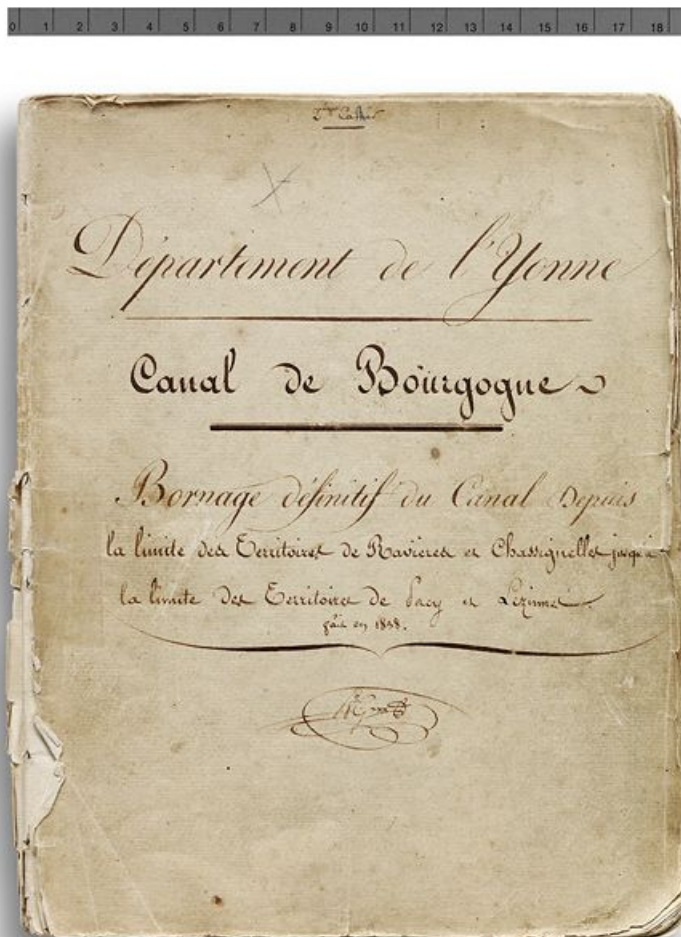 0 1 2 3 4 5 6 7 8 9 10 11 12 13 14 15 16 17 18
2ème Cahier
Département de l'Yonne
Canal de Bourgogne
Bornage définitif du Canal Depuis
la limite des Territoires de Ravieres et Chassignelles jusqu'à
la limite des Territoires de Pacy et Lezinnes.
fait en 1838.